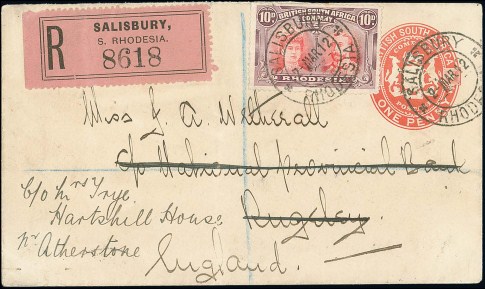 SALISBURY,
S. RHODESIA.
R 8618
10D BRITISH SOUTH AFRICA 10D
COMPANY
RHODESIA
SALISBURY
MAR 12
RHODESIA
BRITISH SOUTH AFRICA
COMPANY
ONE PENNY
SALISBURY
MAR 12
RHODESIA
Miss J. A. Witherall
c/o National Provincial Bank
Rugeley.
c/o Mrs Trye.
Hartshill House
nr Atherstone
England.